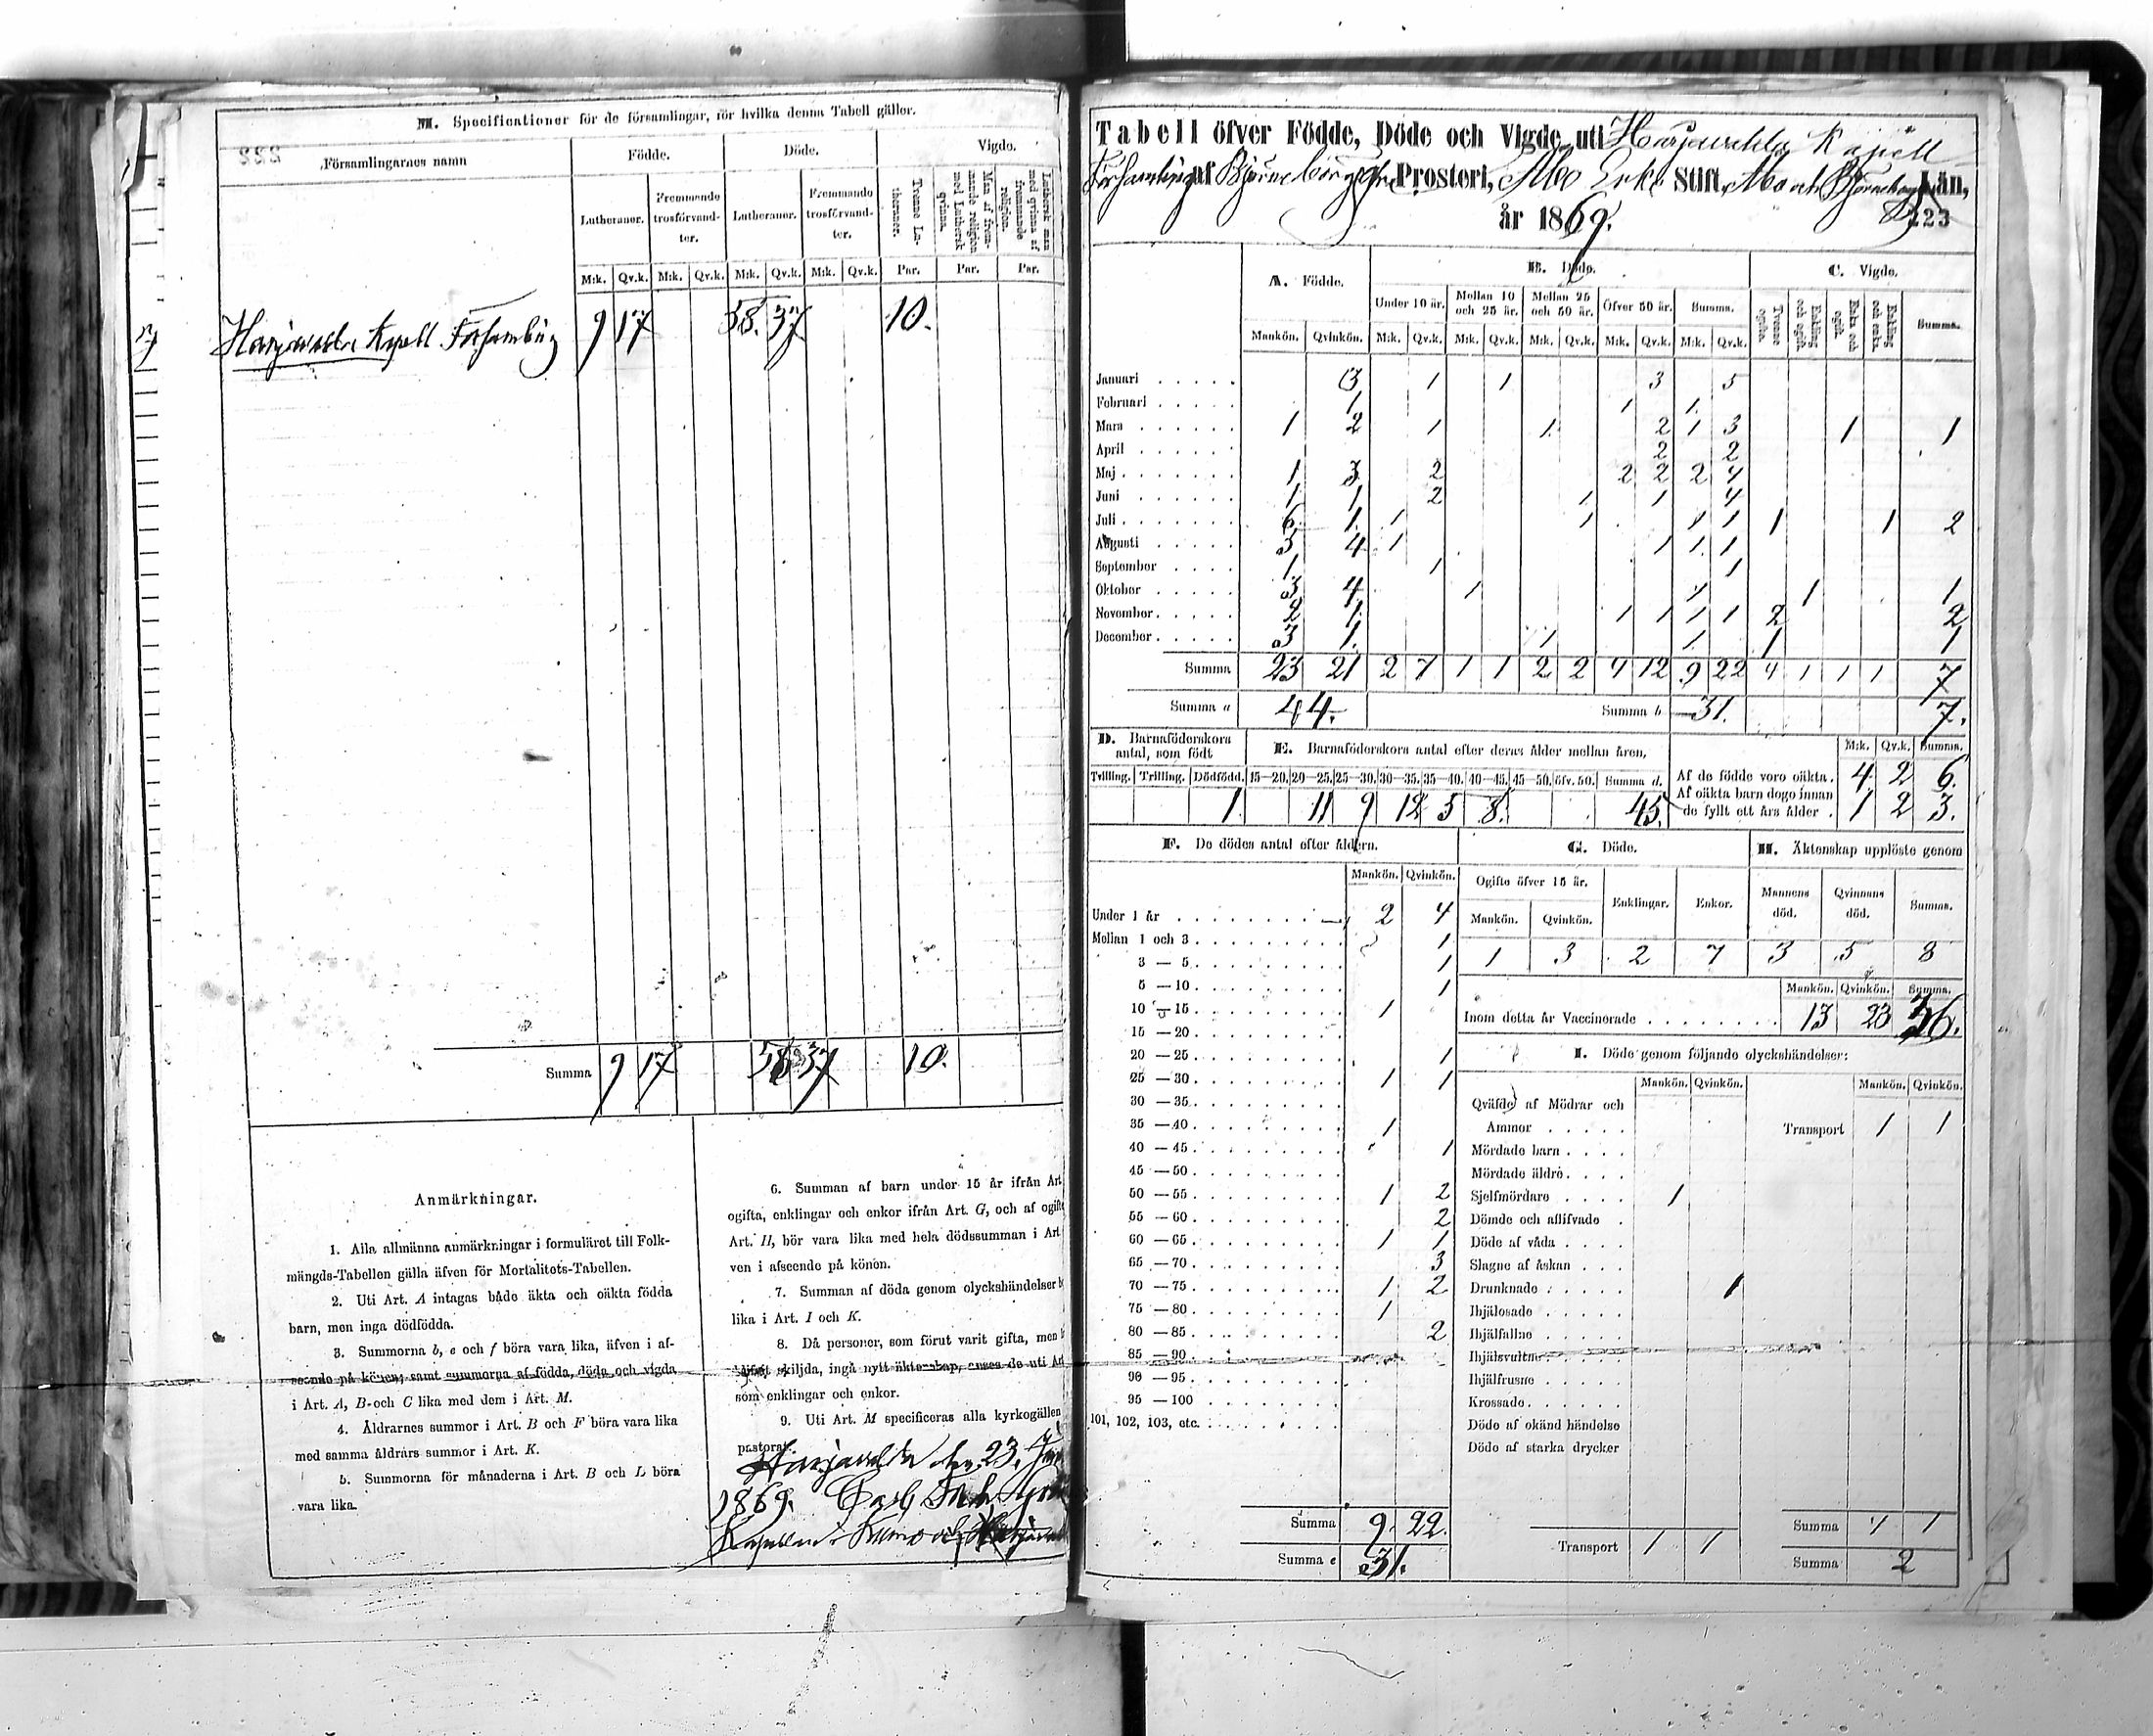 M. Specificationer för de församlingar, för hvilka denna Tabell gäller.
222
Församlingarnes namn
Födde.
Döde.
Vigde.
Lutheraner.
Fremmande trosförvandter.
Lutheraner.
Fremmande trosförvandter.
Tvenne Lutheraner.
Man af fremmande religion med Luthersk qvinna.
Luthersk man med qvinna af fremmande religion.
M:k. Qv.k. M:k. Qv.k. M:k. Qv.k. M:k. Qv.k. Par. Par. Par.
Harjavalda Kapell Församling 9 17 58. 37 10.
Summa 9 17 58 37 10.
Anmärkningar.
1. Alla allmänna anmärkningar i formuläret till Folk-
mängds-Tabellen gälla äfven för Mortalitets-Tabellen.
2. Uti Art. A intagas både äkta och oäkta födda
barn, men inga dödfödda.
3. Summorna b, e och f böra vara lika, äfven i af-
seende på könen; samt summorna af födda, döda och vigda
i Art. A, B och C lika med dem i Art. M.
4. Åldrarnes summor i Art. B och F böra vara lika
med samma åldrars summor i Art. K.
5. Summorna för månaderna i Art. B och L böra
vara lika.
6. Summan af barn under 15 år ifrån Art
ogifta, enklingar och enkor ifrån Art. G, och af ogifte
Art. H, bör vara lika med hela dödssumman i Art
ven i afseende på könen.
7. Summan af döda genom olyckshändelser b
lika i Art. I och K.
8. Då personer, som förut varit gifta, men
skiljda, ingå nytt äktenskap, anses de uti Art
som enklingar och enkor.
9. Uti Art. M specificeras alla kyrkogällen
pastorat.
Harjavalda den 23. Jan
1869. Carl
Kapellan i Kumo och
Tabell öfver Födde, Döde och Vigde uti Harjavalda Kapell
Församling af Björneborgs Prosteri, Åbo Erke Stift, Åbo och Björneborgs Län,
år 1869.
223
A. Födde.
B. Döde.
C. Vigde.
Under 10 år. Mellan 10 och 25 år. Mellan 25 och 50 år. Öfver 50 år. Summa.
Tvenne ogifta. Enkling och ogift. Enka och ogift. Enkling och enka. Summa.
Mankön. Qvinkön. M:k. Qv.k. M:k. Qv.k. M:k. Qv.k. M:k. Qv.k. M:k. Qv.k.
Januari 3 1 1 3 5
Februari 1 1 1
Mars 1 2 1 1 2 1 3 1 1
April 2 2
Maj 1 3 2 2 2 2 4
Juni 1 1 2 1 1 4
Juli 6 1 1 1 1 1 1 1 2
Augusti 3 4 1 1 1 1
September 1 1 1
Oktober 3 4 1 1 1 1
November 2 1 1 1 1 1 2 2
December 3 1 1 1 1 1
Summa 23 21 2 7 1 1 2 2 4 12 9 22 4 1 1 1 7
Summa a 44. Summa b 31. 7.
D. Barnaföderskors antal, som födt
E. Barnaföderskors antal efter deras ålder mellan åren.
M:k. Qv.k. Summa.
Tvilling. Trilling. Dödfödd. 15—20. 20—25. 25—30. 30—35. 35—40. 40—45. 45—50. öfv. 50. Summa d.
1 11 9 12 5 8. 45.
Af de födde voro oäkta. 4 2 6.
Af oäkta barn dogo innan
de fyllt ett års ålder. 1 2 3.
F. De dödes antal efter åldern.
Mankön. Qvinkön.
Under 1 år 2 4
Mellan 1 och 3 1
3 — 5 1
5 — 10 1
10 — 15 1
15 — 20
20 — 25 1
25 — 30 1 1
30 — 35
35 — 40 1
40 — 45 1
45 — 50
50 — 55 1 2
55 — 60 2
60 — 65 1 1
65 — 70 3
70 — 75 1 2
75 — 80 1
80 — 85 2
85 — 90
90 — 95
95 — 100
101, 102, 103, etc.
Summa 9. 22.
Summa e 31.
G. Döde.
Ogifte öfver 15 år. Enklingar. Enkor.
Mankön. Qvinkön.
1 3 2 7
H. Äktenskap upplöste genom
Mannens död. Qvinnans död. Summa.
3 5 8
Mankön. Qvinkön. Summa.
Inom detta år Vaccinerade 13 23 36.
I. Döde genom följande olyckshändelser:
Mankön. Qvinkön. Mankön. Qvinkön.
Qväfde af Mödrar och
Ammor Transport 1 1
Mördade barn
Mördade äldre
Sjelfmördare 1
Dömde och aflifvade
Döde af våda
Slagne af åskan
Drunknade 1
Ihjälosade
Ihjälfallne
Ihjälsvultne
Ihjälfrusne
Krossade
Döde af okänd händelse
Döde af starka drycker
Transport 1 1
Summa 1 1
Summa 2